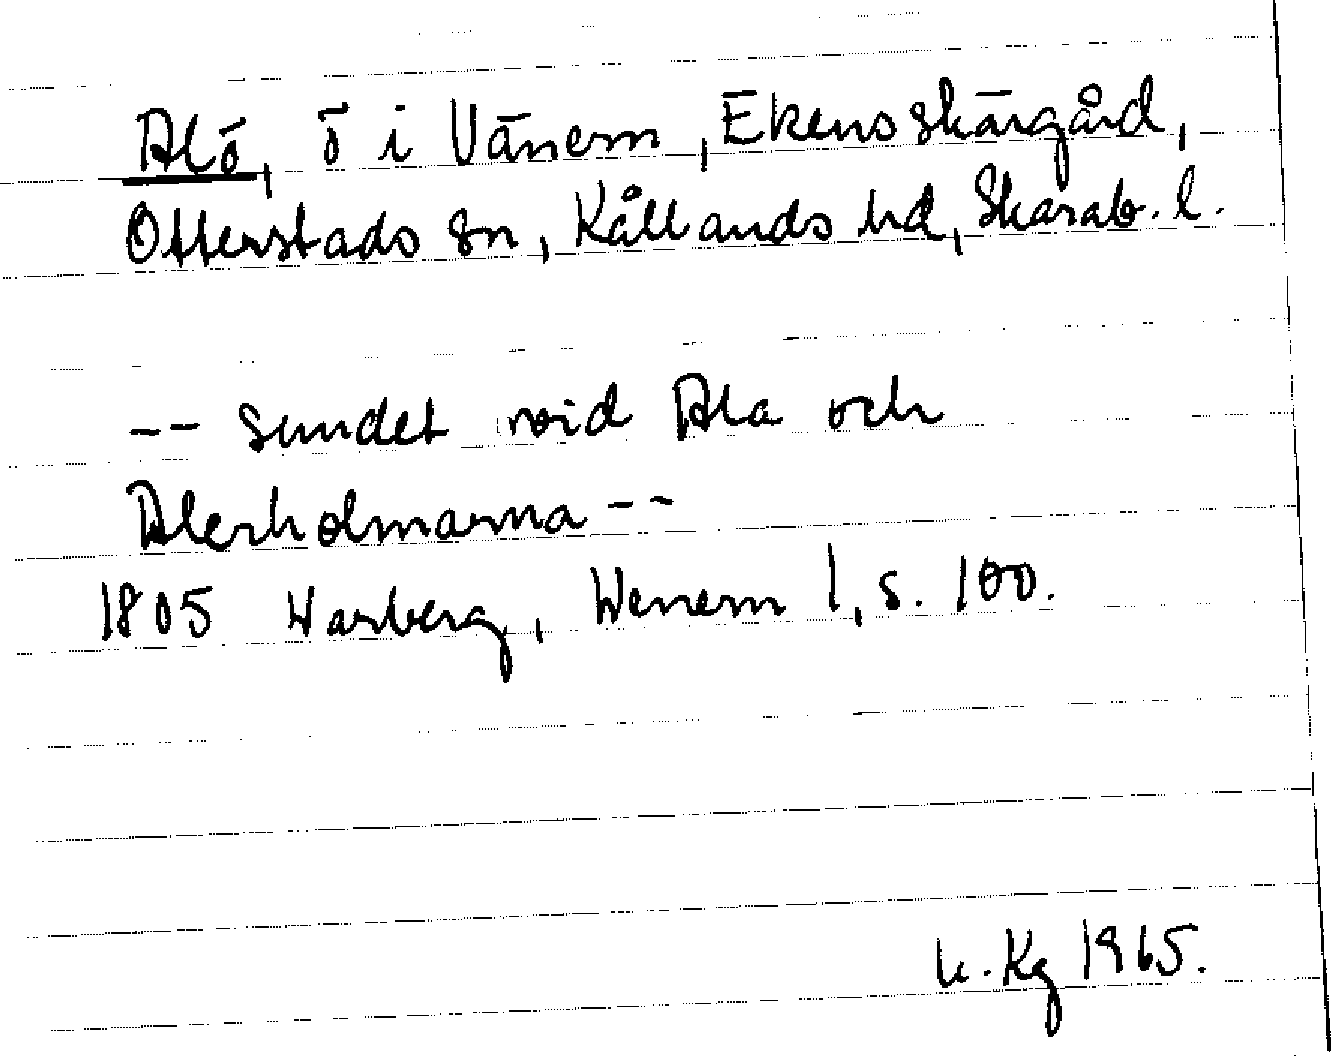 Alö, ö i Vänern, Ekens skärgård,
Otterstads sn, Kållands hd, Skarab. l.
-- sundet wid Ala och
Alerholmarna --
1805 Warberg, Wenern 1, s. 100.
K. Kg 1965.